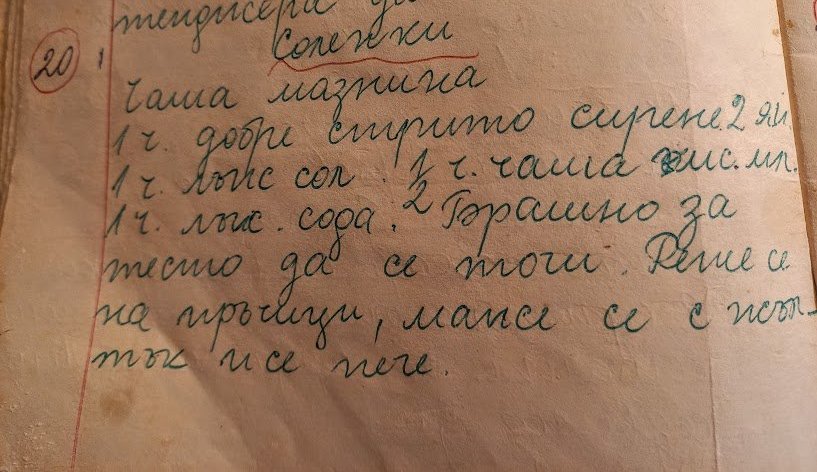 тенджера
Соленки
20
чаша мазнина
1 ч. добре стрито сирене. 2 яй.
1 ч. лъж сол. 1 ч. чаша кис. мл.
1 ч. лъж. сода. 2 Брашно за
тесто да се точи. Реже се
на пръчици, маже се с жъл-
тък и се пече.